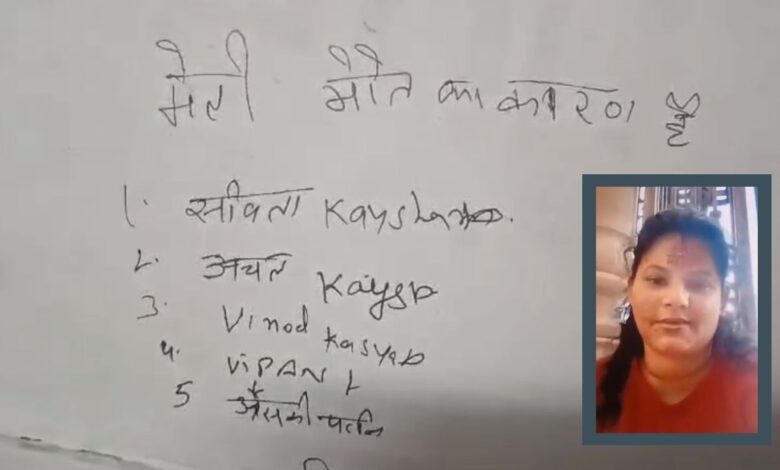 मेरी मौत का कारण है
1. सविता Kayshab.
2. अचल Kaysb
3. Vinod Kasyab
4. VIPAN K
5 उसकी पत्नि